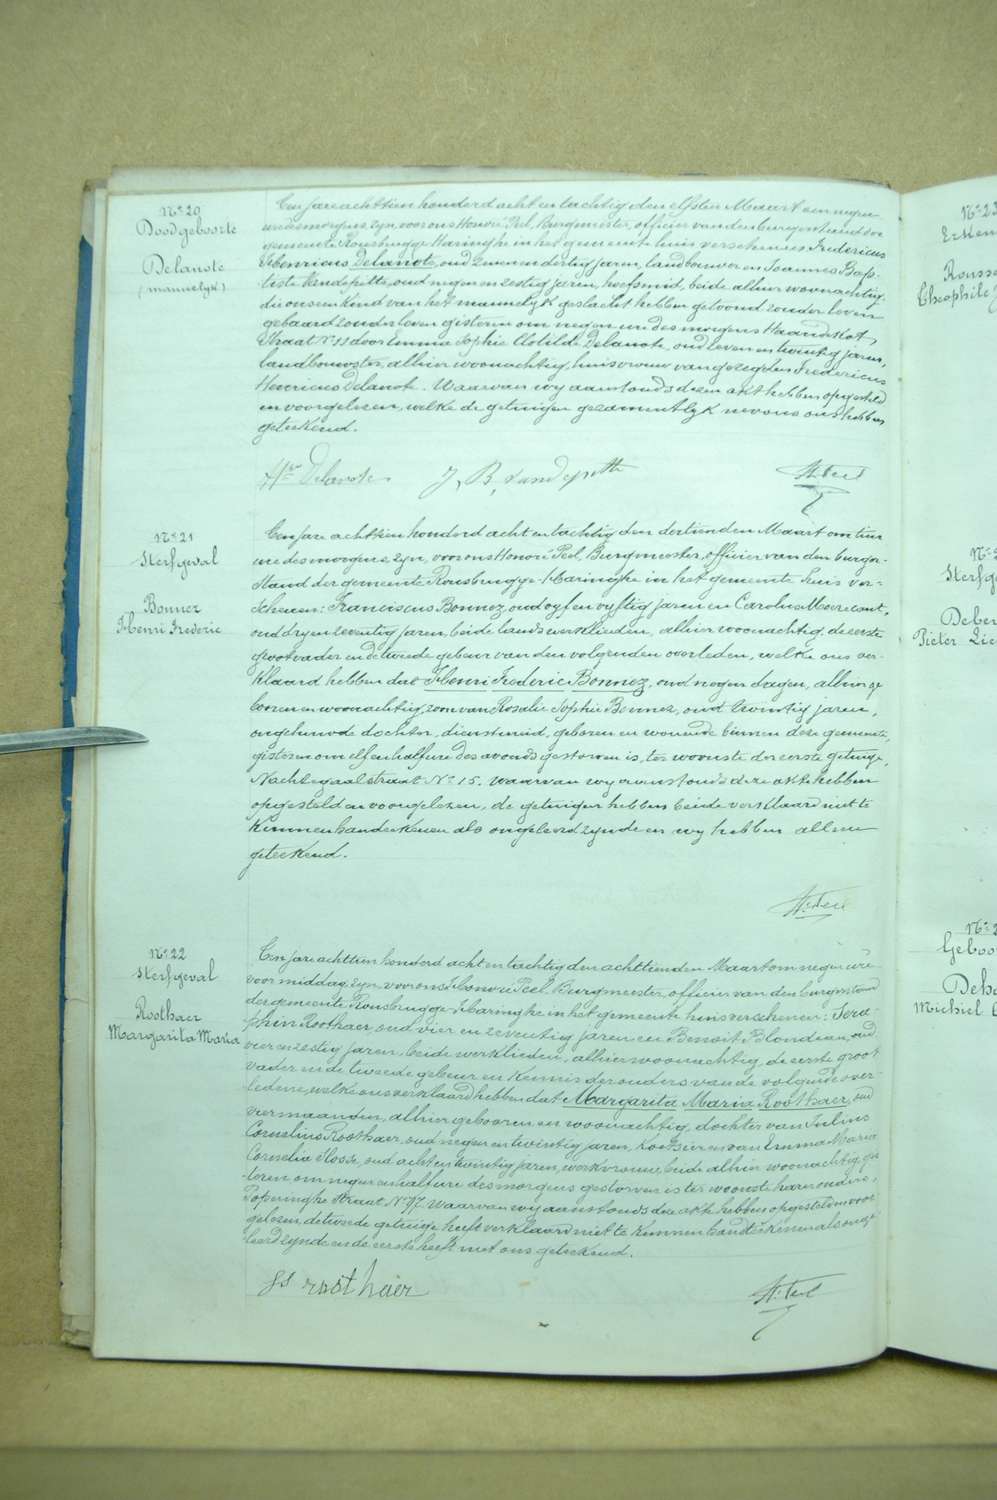 N° 20
Doodgeboorte
Delanote
(mannelijk)
Een jare achttien honderd acht en tachtig den elfsten Maart om negen
ure des morgens zyn voor ons Honoré Peel Burgmeester, officier van den burgerstand der
gemeente Rousbrugge Haringhe in het gemeente huis verschenen Fredericus
Henricus Delanote, oud zeven en dertig jaren, landbouwer en Joannes Bap-
tiste Vandepitte, oud negen en zestig jaren, hoefsmid, beide alhier woonachtig,
die ons een kind van het mannelyk geslacht hebben getoond zonder leven
gebaard zonder leven gisteren om negen ure des morgens Haandekot
Straat N° 11 door Emma Sophie Clotilde Delanote, oud zeven en twintig jaren,
landbouwster, alhier woonachtig, huisvrouw van gezegden Fredericus
Henricus Delanote. Waarvan wy aanstonds dezen akt hebben opgesteld
en voorgelezen, welke de getuigen gezamentlyk nevens ons hebben
geteekend.
Hri Delanote J, B, vandepitte H. Peel
N° 21
Sterfgeval
Bonnez
Henri Frederic
Een jare achttien honderd acht en tachtig den dertienden Maart om tien
ure des morgens zyn, voor ons Honoré Peel, Burgmeester, officier van den burger-
stand der gemeente Rousbrugge-Haringhe in het gemeente huis ver-
schenen: Franciscus Bonnez, oud vyf en vyftig jaren en Carolus Meerecant,
oud dry en zeventig jaren, beide landswerklieden, alhier woonachtig, de eerste
grootvader en de tweede gebuur van den volgenden overleden, welke ons ver-
klaard hebben dat Henri Frederic Bonnez, oud negen dagen, alhier ge
boren en woonachtig, zoon van Rosalie Sophie Bonnez, oud twintig jaren,
ongehuwde dochter, dienstmeid, geboren en wonende binnen deze gemeente,
gisteren om elf en half ure des avonds gestorven is, ter woonste der eerste getuige,
Nachtegaalstraat N° 15. Waarvan wy aanstonds deze akte hebben
opgesteld en voorgelezen, de getuigen hebben beide verklaard niet te
kunnen handteekenen als ongeleerd zynde en wy hebben alleen
geteekend.
H. Peel
N° 22
Sterfgeval
Roothaer
Margarita Maria
Een jare achttien honderd acht en tachtig den achttienden Maart om negen ure
voor middag, zyn voor ons Honoré Peel Burgmeester, officier van den burgerstand
der gemeente Rousbrugge-Haringhe in het gemeente huis verschenen: Sera-
phin Roothaer, oud vier en zeventig jaren en Benoit Blondeau, oud
vier en zestig jaren, beide werklieden, alhier woonachtig, de eerste groot
vader en de tweede gebuur en kennis der ouders van de volgende over-
ledene, welke ons verklaard hebben dat Margarita Maria Roothaer, oud
vier maanden, alhier geboren en woonachtig, dochter van Julius
Cornelius Roothaer, oud negen en twintig jaren, koetsier en van Emma Maria
Cornelia Slosse, oud acht en twintig jaren, werkvrouw, beide alhier woonachtig, gis
teren om negen en half ure des morgens gestorven is ter woonste harer ouders,
Poperinghe straat, N° 47. Waarvan wy aanstonds deze akt hebben opgesteld en voor
gelezen, de tweede getuige heeft verklaard niet te kunnen handteekenen als onge
leerd zynde en de eerste heeft met ons geteekend.
Ss roothaer H. Peel
Sterfg
Pieter
Michiel